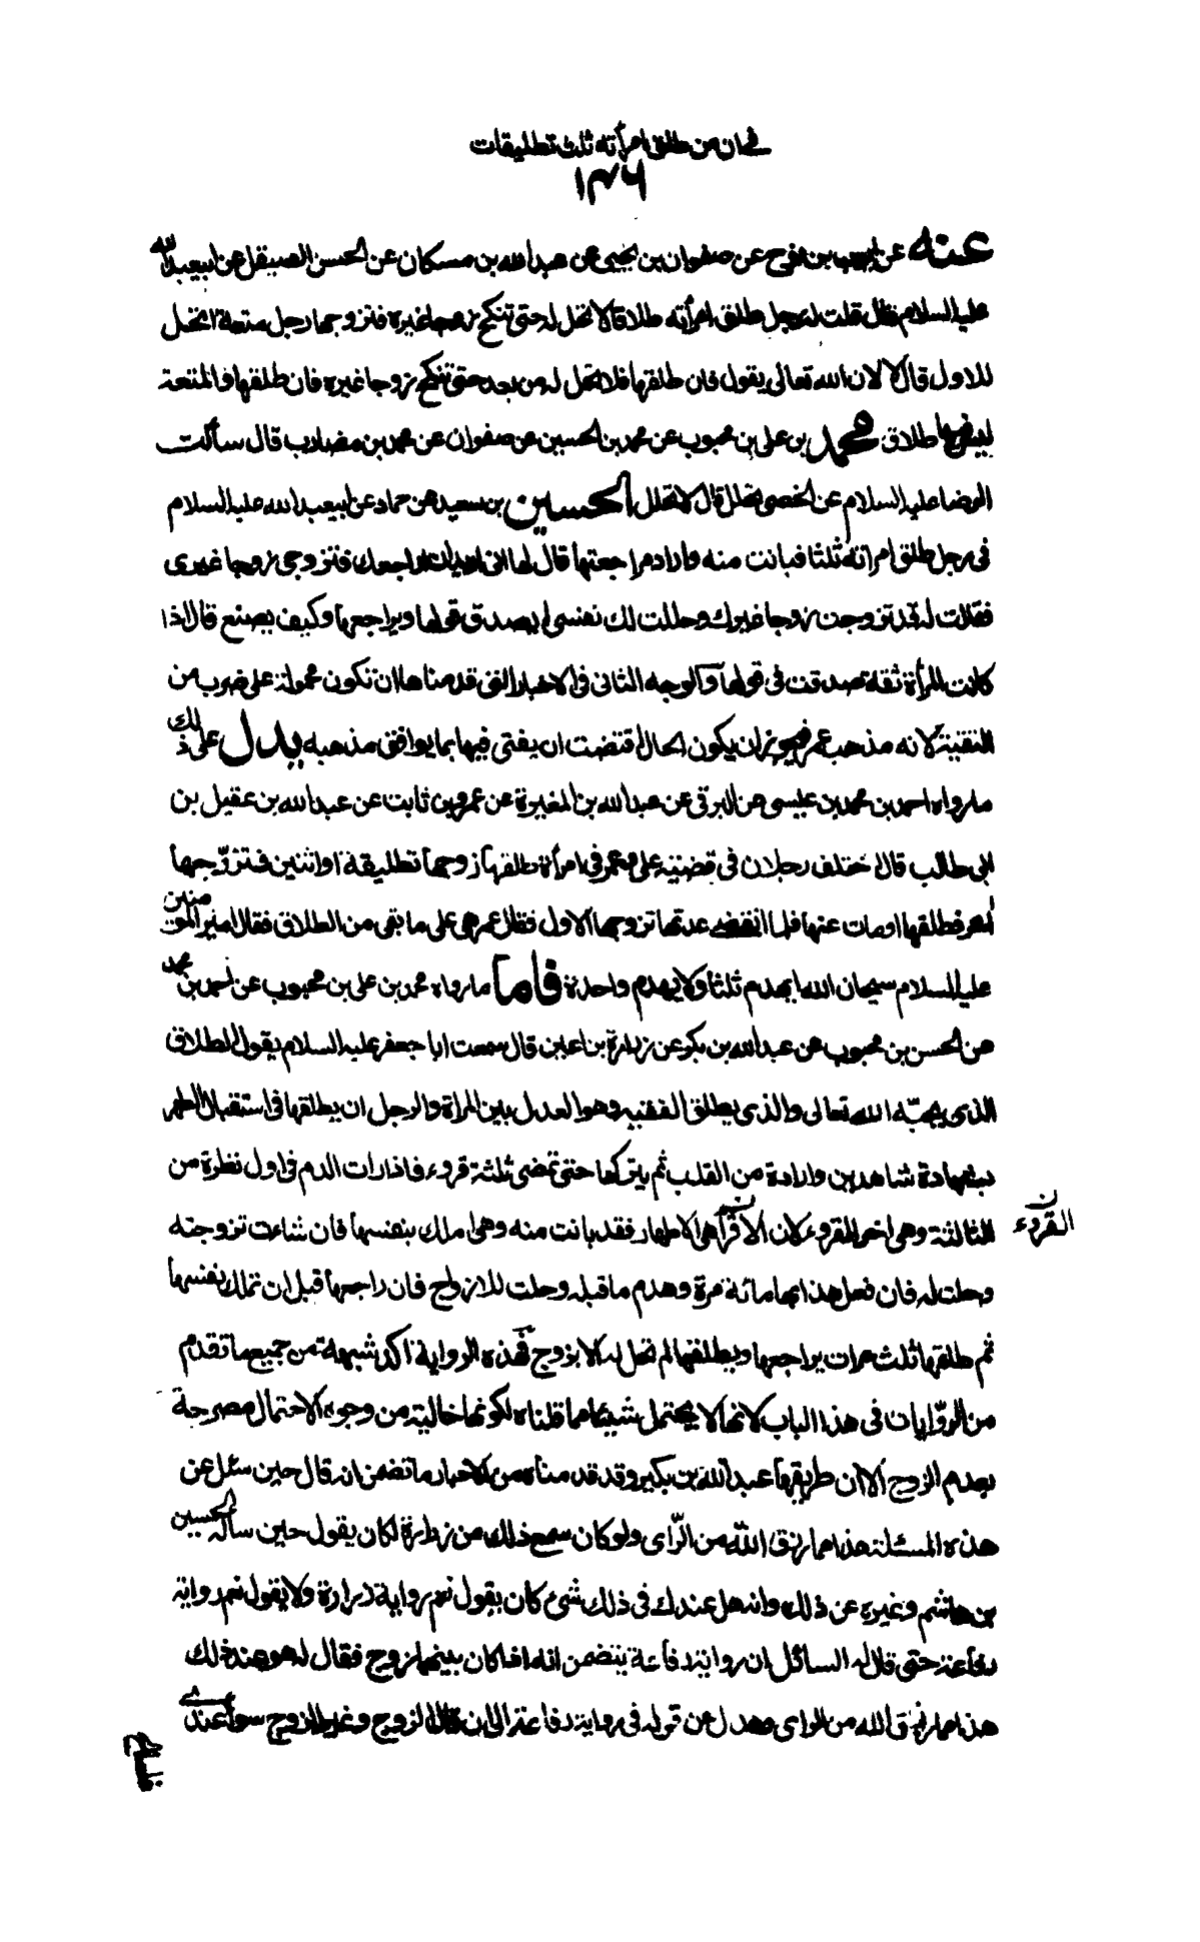 في ان من طلق امرأته ثلث تطليقات
١٣٦
عنه عن ايوب بن نوح عن صفوان بن يحيى عن عبدالله بن مسكان عن الحسن الصيقل عن ابيعبدالله
عليه السلام قال قلت له رجل طلق امرأته طلاقا لا تحل له حتى تنكح زوجا غيره فتزوجها رجل متعة اتحل
للاول قال لا لان الله تعالى يقول فان طلقها فلا تحل له من بعد حتى تنكح زوجا غيره فان طلقها والمتعة
ليس فيها طلاق محمد بن على بن محبوب عن محمد بن الحسين عن صفوان عن محمد بن مضارب قال سألت
الرضا عليه السلام عن الخصى يحلل قال لا يحلل الحسين بن سعيد عن حماد عن ابيعبدالله عليه السلام
فى رجل طلق امرأته ثلثا فبانت منه واراد مراجعتها قال لها انى اريد ان اراجعك فتزوجى زوجا غيرى
فقالت له قد تزوجت زوجا غيرك وحللت لك نفسى ايصدق قولها ويراجعها وكيف يصنع قال اذا
كانت المرأة ثقة صدقت فى قولها والوجه الثانى فى الاخبار التى قدمناها ان تكون محمولة على ضرب من
التقية لانه مذهب عمر فيجوز ان يكون الحال اقتضت ان يفتى فيها بما يوافق مذهبه يدل على ذلك
ما رواه احمد بن محمد بن عيسى عن البرقى عن عبدالله بن المغيرة عن عمرو بن ثابت عن عبدالله بن عقيل بن
ابى طالب قال اختلف رجلان فى قضية على وعمر فى امرأة طلقها زوجها تطليقة او اثنتين فتزوّجها
آخر فطلقها او مات عنها فلما انقضت عدتها تزوجها الاول فقال عمر هى على ما بقى من الطلاق فقال امير المؤمنين
عليه السلام سبحان الله ايهدم ثلثا ولا يهدم واحدة فاما ما رواه محمد بن على بن محبوب عن احمد بن محمد
عن الحسن بن محبوب عن عبدالله بن بكير عن زرارة بن اعين قال سمعت ابا جعفر عليه السلام يقول الطلاق
الذى يحبّه الله تعالى والذى يطلق الفقيه وهو العدل بين المرأة والرجل ان يطلقها فى استقبال الطهر
بشهادة شاهدين وارادة من القلب ثم يتركها حتى تمضى ثلثة قروء فاذا رات الدم فى اول نظرة من
الثالثة وهى آخر القروء لان الاقراء هى الاطهار فقد بانت منه وهى املك بنفسها فان شاءت تزوجته
القروء ن
وحلت له فان فعل هذا بها مائة مرة وهدم ما قبله وحلت للازواج فان راجعها قبل ان تملك نفسها
ثم طلقها ثلث مرات يراجعها ويطلقها لم تحل له الا بزوج فهذه الرواية آكد شبهة من جميع ما تقدم
من الروّايات فى هذا الباب لانها لا يحتمل شيئا مما قلناه لكونها خالية من وجوه الاحتمال مصرحة
بعدم الزوج الا ان طريقها عبدالله بن بكير وقد قدمناه من الاخبار ما تضمن انه قال حين سئل عن
هذه المسئلة هذا مما رزق اللّه من الرّاى ولو كان سمع ذلك من زرارة لكان يقول حين سأله الحسين
بن هاشم وغيره عن ذلك وانه هل عندك فى ذلك شئ كان يقول نعم رواية زرارة ولا يقول نعم رواية
رفاعة حتى قال له السائل ان رواية رفاعة يتضمن انه اذا كان بينهما زوج فقال له هو عند ذلك
هذا مما رزق الله من الراى وعدل عن قوله فى رواية رفاعة الى ان قال الزوج وغير الزوج سواء عندى